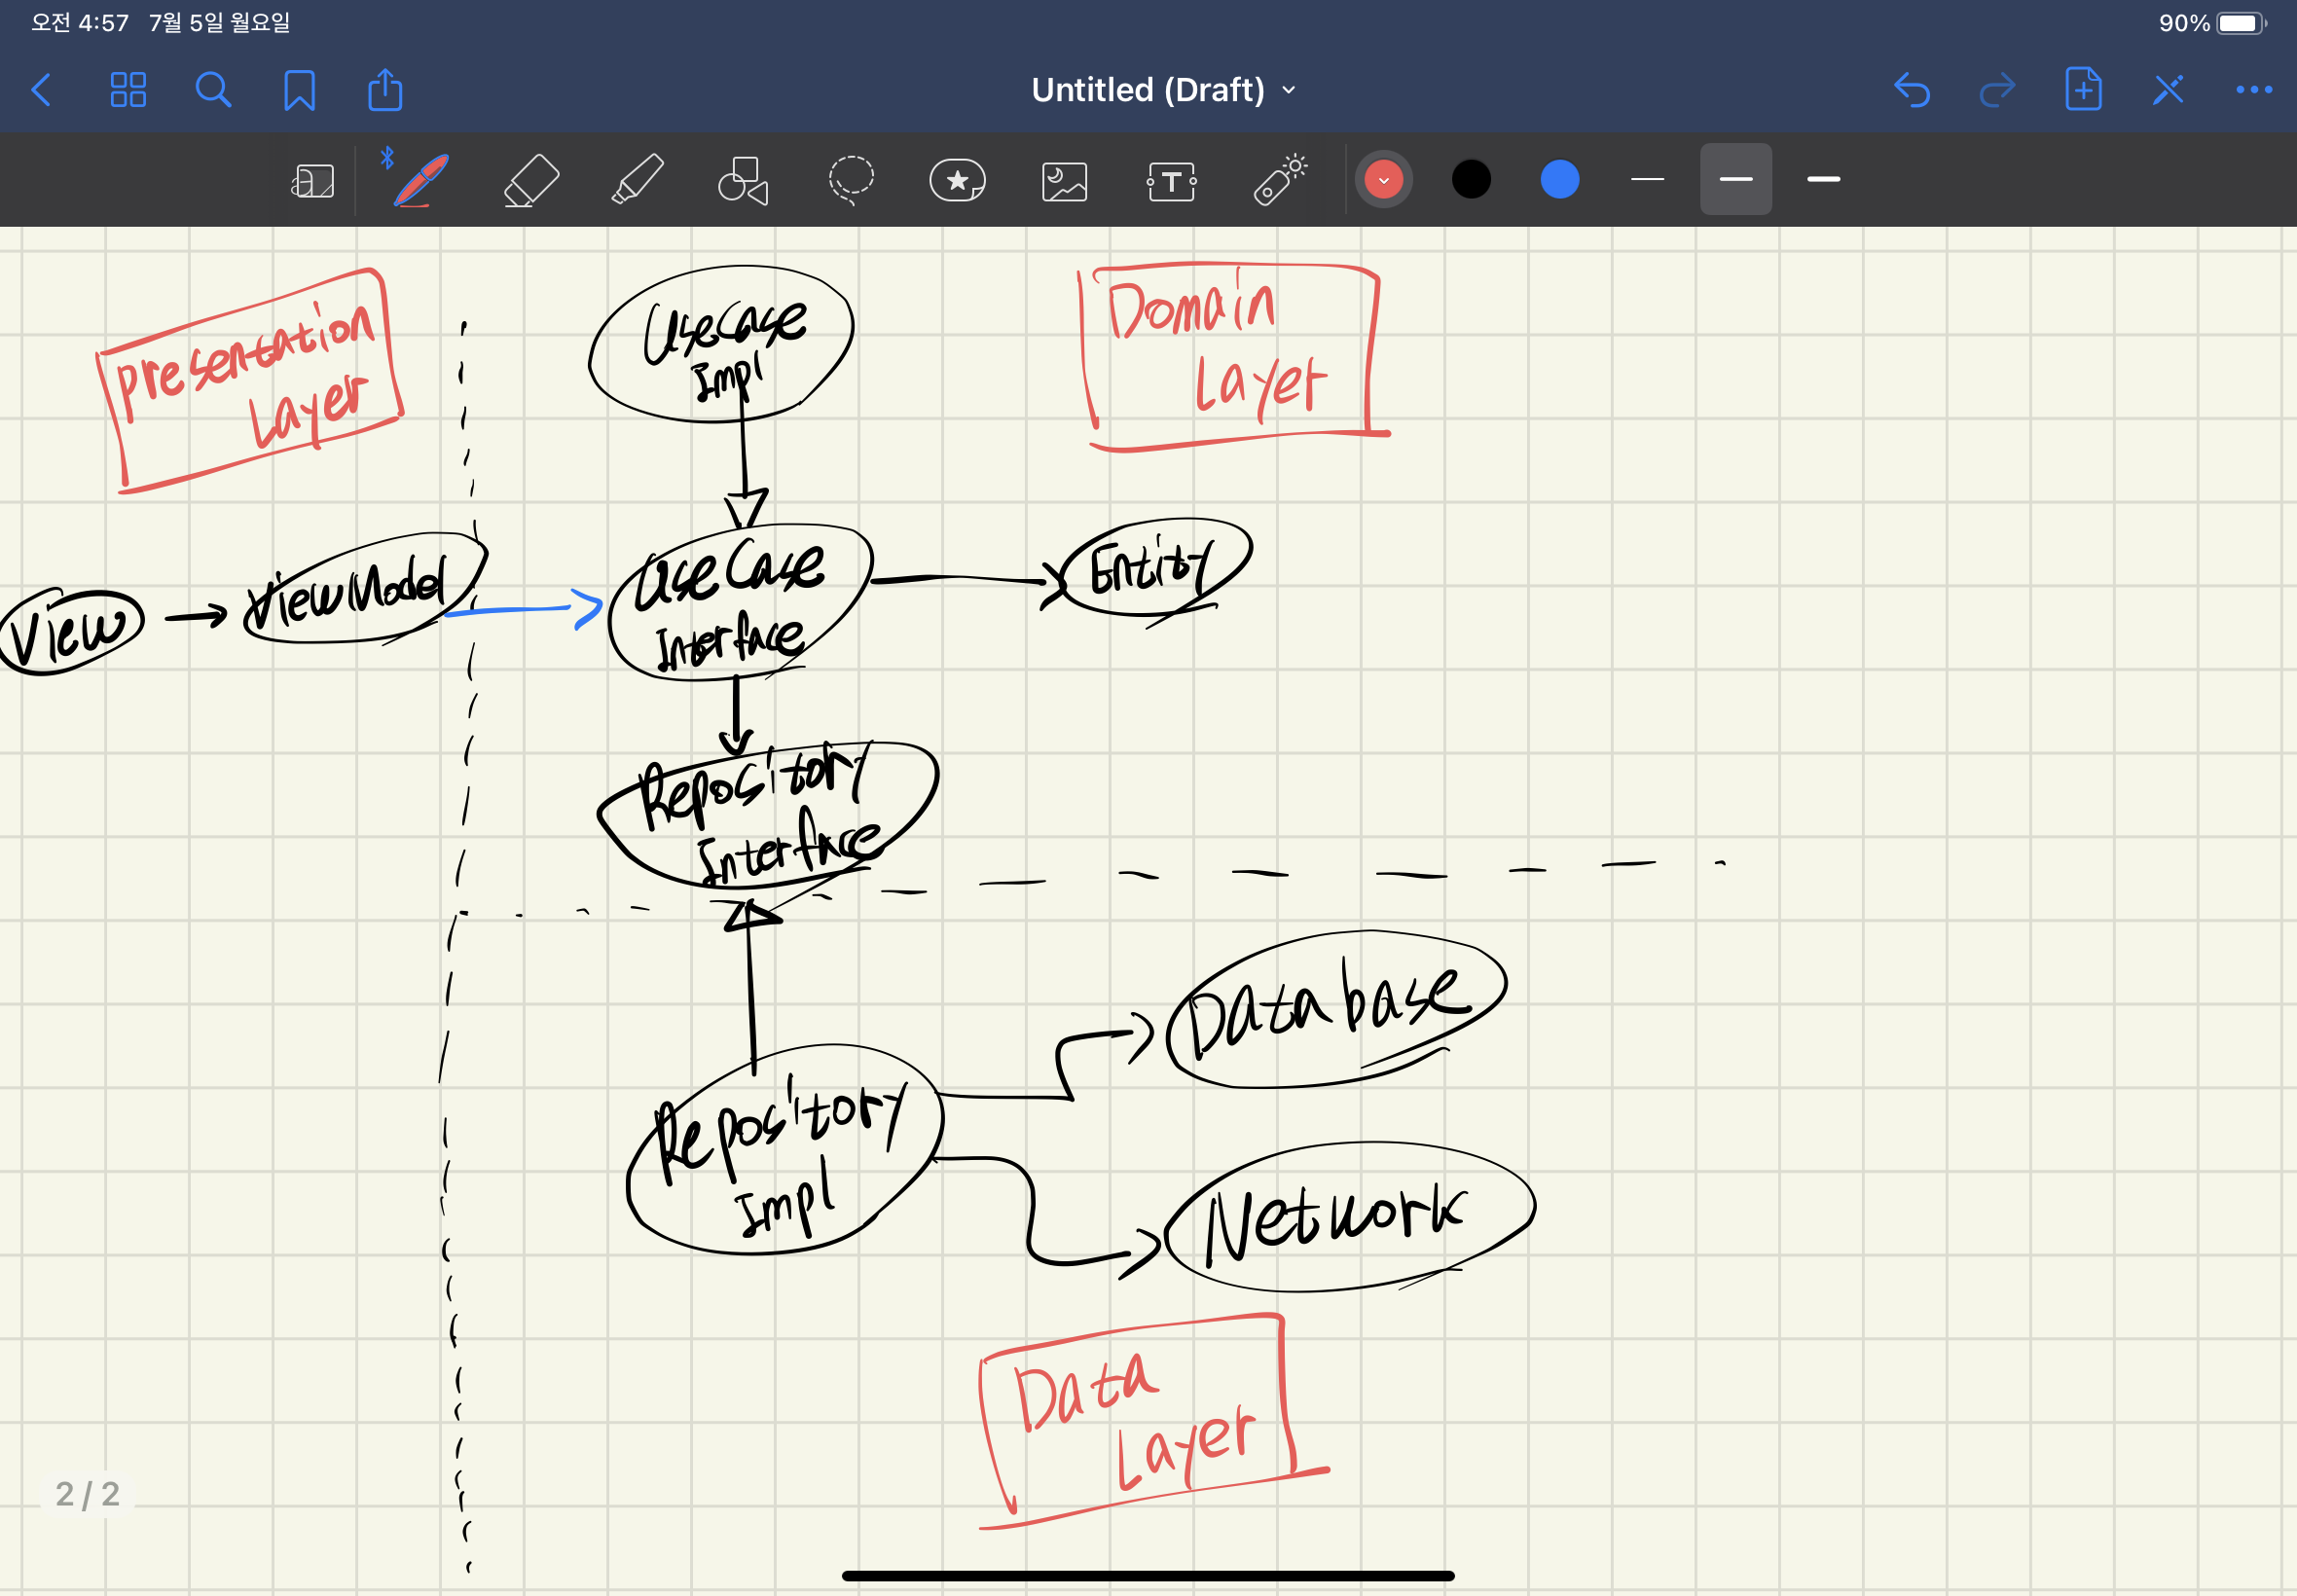 오전 4:57 7월 5일 월요일
90%
Untitled (Draft)
T
Presentation
Layer
UseCase
Impl
Domain
Layer
View
ViewModel
Use Case
Interface
Entity
Repository
Interface
Database
Repository
Impl
Network
Data
Layer
2 / 2